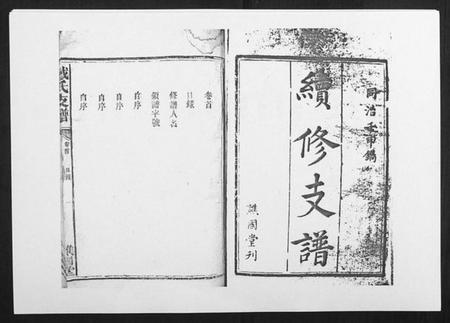 同治壬申鐫
續修支譜
譙國堂刊
卷首
目錄
修譜人名
領譜字號
序
自序
自序
自序
戴氏支譜
卷首
目錄